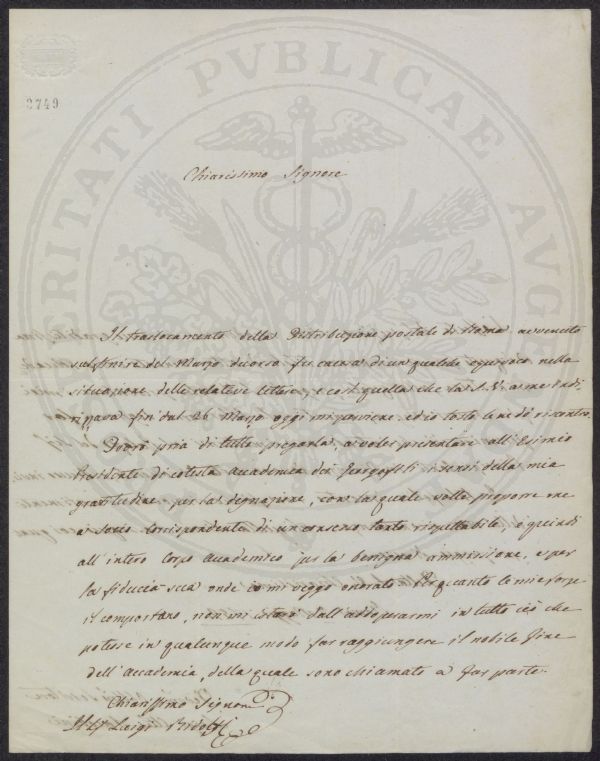 PROSPERITATI PVBLICAE AVGENDAE
2749
Chiarissimo Signore
Il traslocamento della Distribuzione postale di Roma avvenuto
sul finire del Marzo decorso fu causa di un qualche equivoco nella
situazione delle relative lettere, e così quella che la S. V. a me indi-
rizzava fin dal 26 Marzo oggi mi perviene, ed io tosto le ne do riscontro.
Dovrò pria di tutto pregarla, a voler presentare all'Esimio
Presidente di cotesta Accademia dei Georgofili i sensi della mia
gratitudine per la degnazione, con la quale volle proporre me
a Socio Corrispondente di un consesso tanto rispettabile, e quindi
all'intero Corpo Accademico per la benigna ammissione, e per
la fiducia sua onde io mi veggo onorato. Per quanto le mie forze
il comportano, non mi starò dall'adoperarmi in tutto ciò che
potesse in qualunque modo far raggiungere il nobile fine
dell'Accademia, della quale sono chiamato a far parte.
Chiarissimo Signore
Luigi Ridolfi